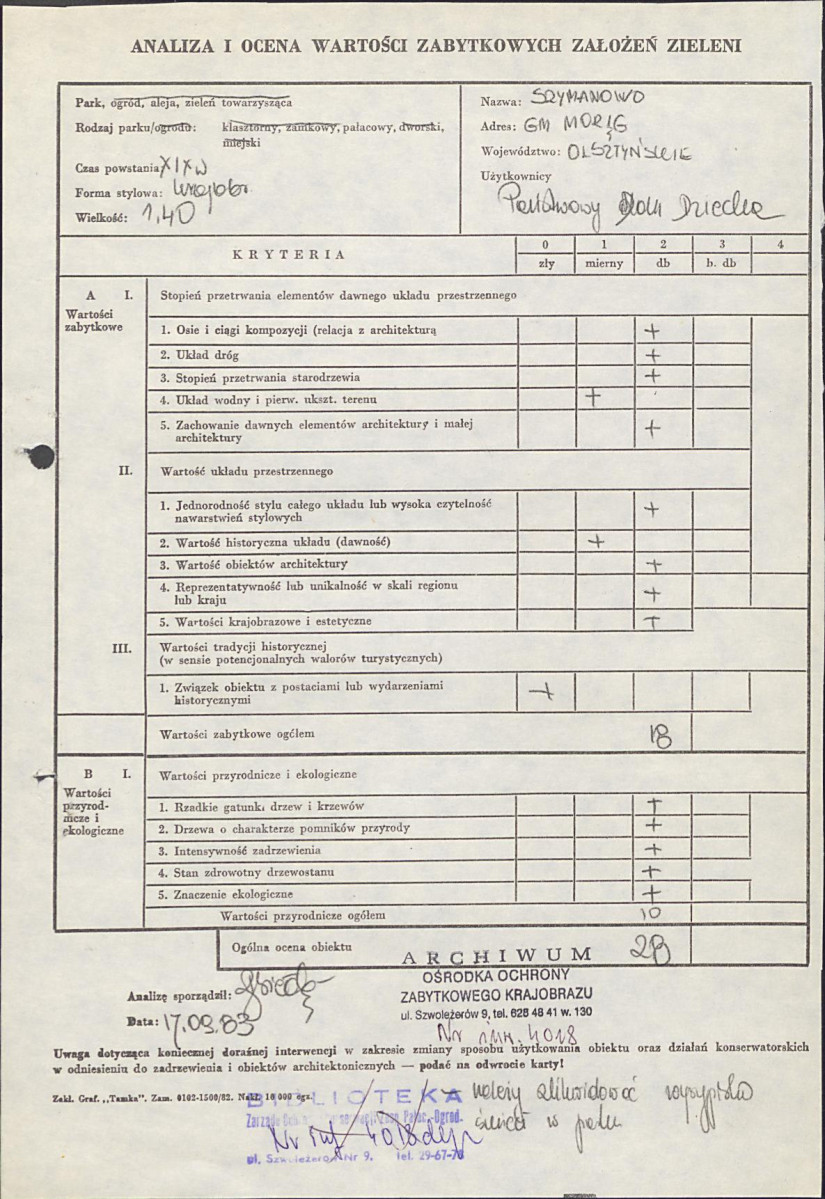 ANALIZA I OCENA WARTOŚCI ZABYTKOWYCH ZAŁOŻEŃ ZIELENI
Park, ogród, aleja, zieleń towarzysząca
Rodzaj parku/ogrodu: klasztorny, zamkowy, pałacowy, dworski,
miejski
Czas powstania XIX w
Forma stylowa: krajobr.
Wielkość: 1,40
Nazwa: SZYMANOWO
Adres: GM MORĄG
Województwo: OLSZTYŃSKIE
Użytkownicy
Państwowy Dom Dziecka
KRYTERIA
0 1 2 3 4
zły mierny db b. db
A I. Stopień przetrwania elementów dawnego układu przestrzennego
Wartości
zabytkowe
1. Osie i ciągi kompozycji (relacja z architekturą +
2. Układ dróg +
3. Stopień przetrwania starodrzewia +
4. Układ wodny i pierw. ukszt. terenu +
5. Zachowanie dawnych elementów architektury i małej
architektury +
II. Wartość układu przestrzennego
1. Jednorodność stylu całego układu lub wysoka czytelność
nawarstwień stylowych +
2. Wartość historyczna układu (dawność) +
3. Wartość obiektów architektury +
4. Reprezentatywność lub unikalność w skali regionu
lub kraju +
5. Wartości krajobrazowe i estetyczne +
III. Wartości tradycji historycznej
(w sensie potencjonalnych walorów turystycznych)
1. Związek obiektu z postaciami lub wydarzeniami
historycznymi +
Wartości zabytkowe ogółem 18
B I. Wartości przyrodnicze i ekologiczne
Wartości
przyrod-
nicze i
ekologiczne
1. Rzadkie gatunki drzew i krzewów +
2. Drzewa o charakterze pomników przyrody +
3. Intensywność zadrzewienia +
4. Stan zdrowotny drzewostanu +
5. Znaczenie ekologiczne +
Wartości przyrodnicze ogółem 10
Ogólna ocena obiektu 28
ARCHIWUM
OŚRODKA OCHRONY
ZABYTKOWEGO KRAJOBRAZU
ul. Szwoleżerów 9, tel. 628 48 41 w. 130
Nr inw. 4018
Analizę sporządził:
Data: 17.09.83
Uwaga dotycząca koniecznej doraźnej interwencji w zakresie zmiany sposobu użytkowania obiektu oraz działań konserwatorskich
w odniesieniu do zadrzewienia i obiektów architektonicznych — podać na odwrocie karty!
Zakł. Graf. „Tamka". Zam. 0102-1500/82. Nakł. 10 000 egz.
BIBLIOTEKA
należy zlikwidować wysypisko
śmieci w parku
Pałac.-Ogrod.
ul. Szwoleżerów Nr 9. tel. 29-67-70